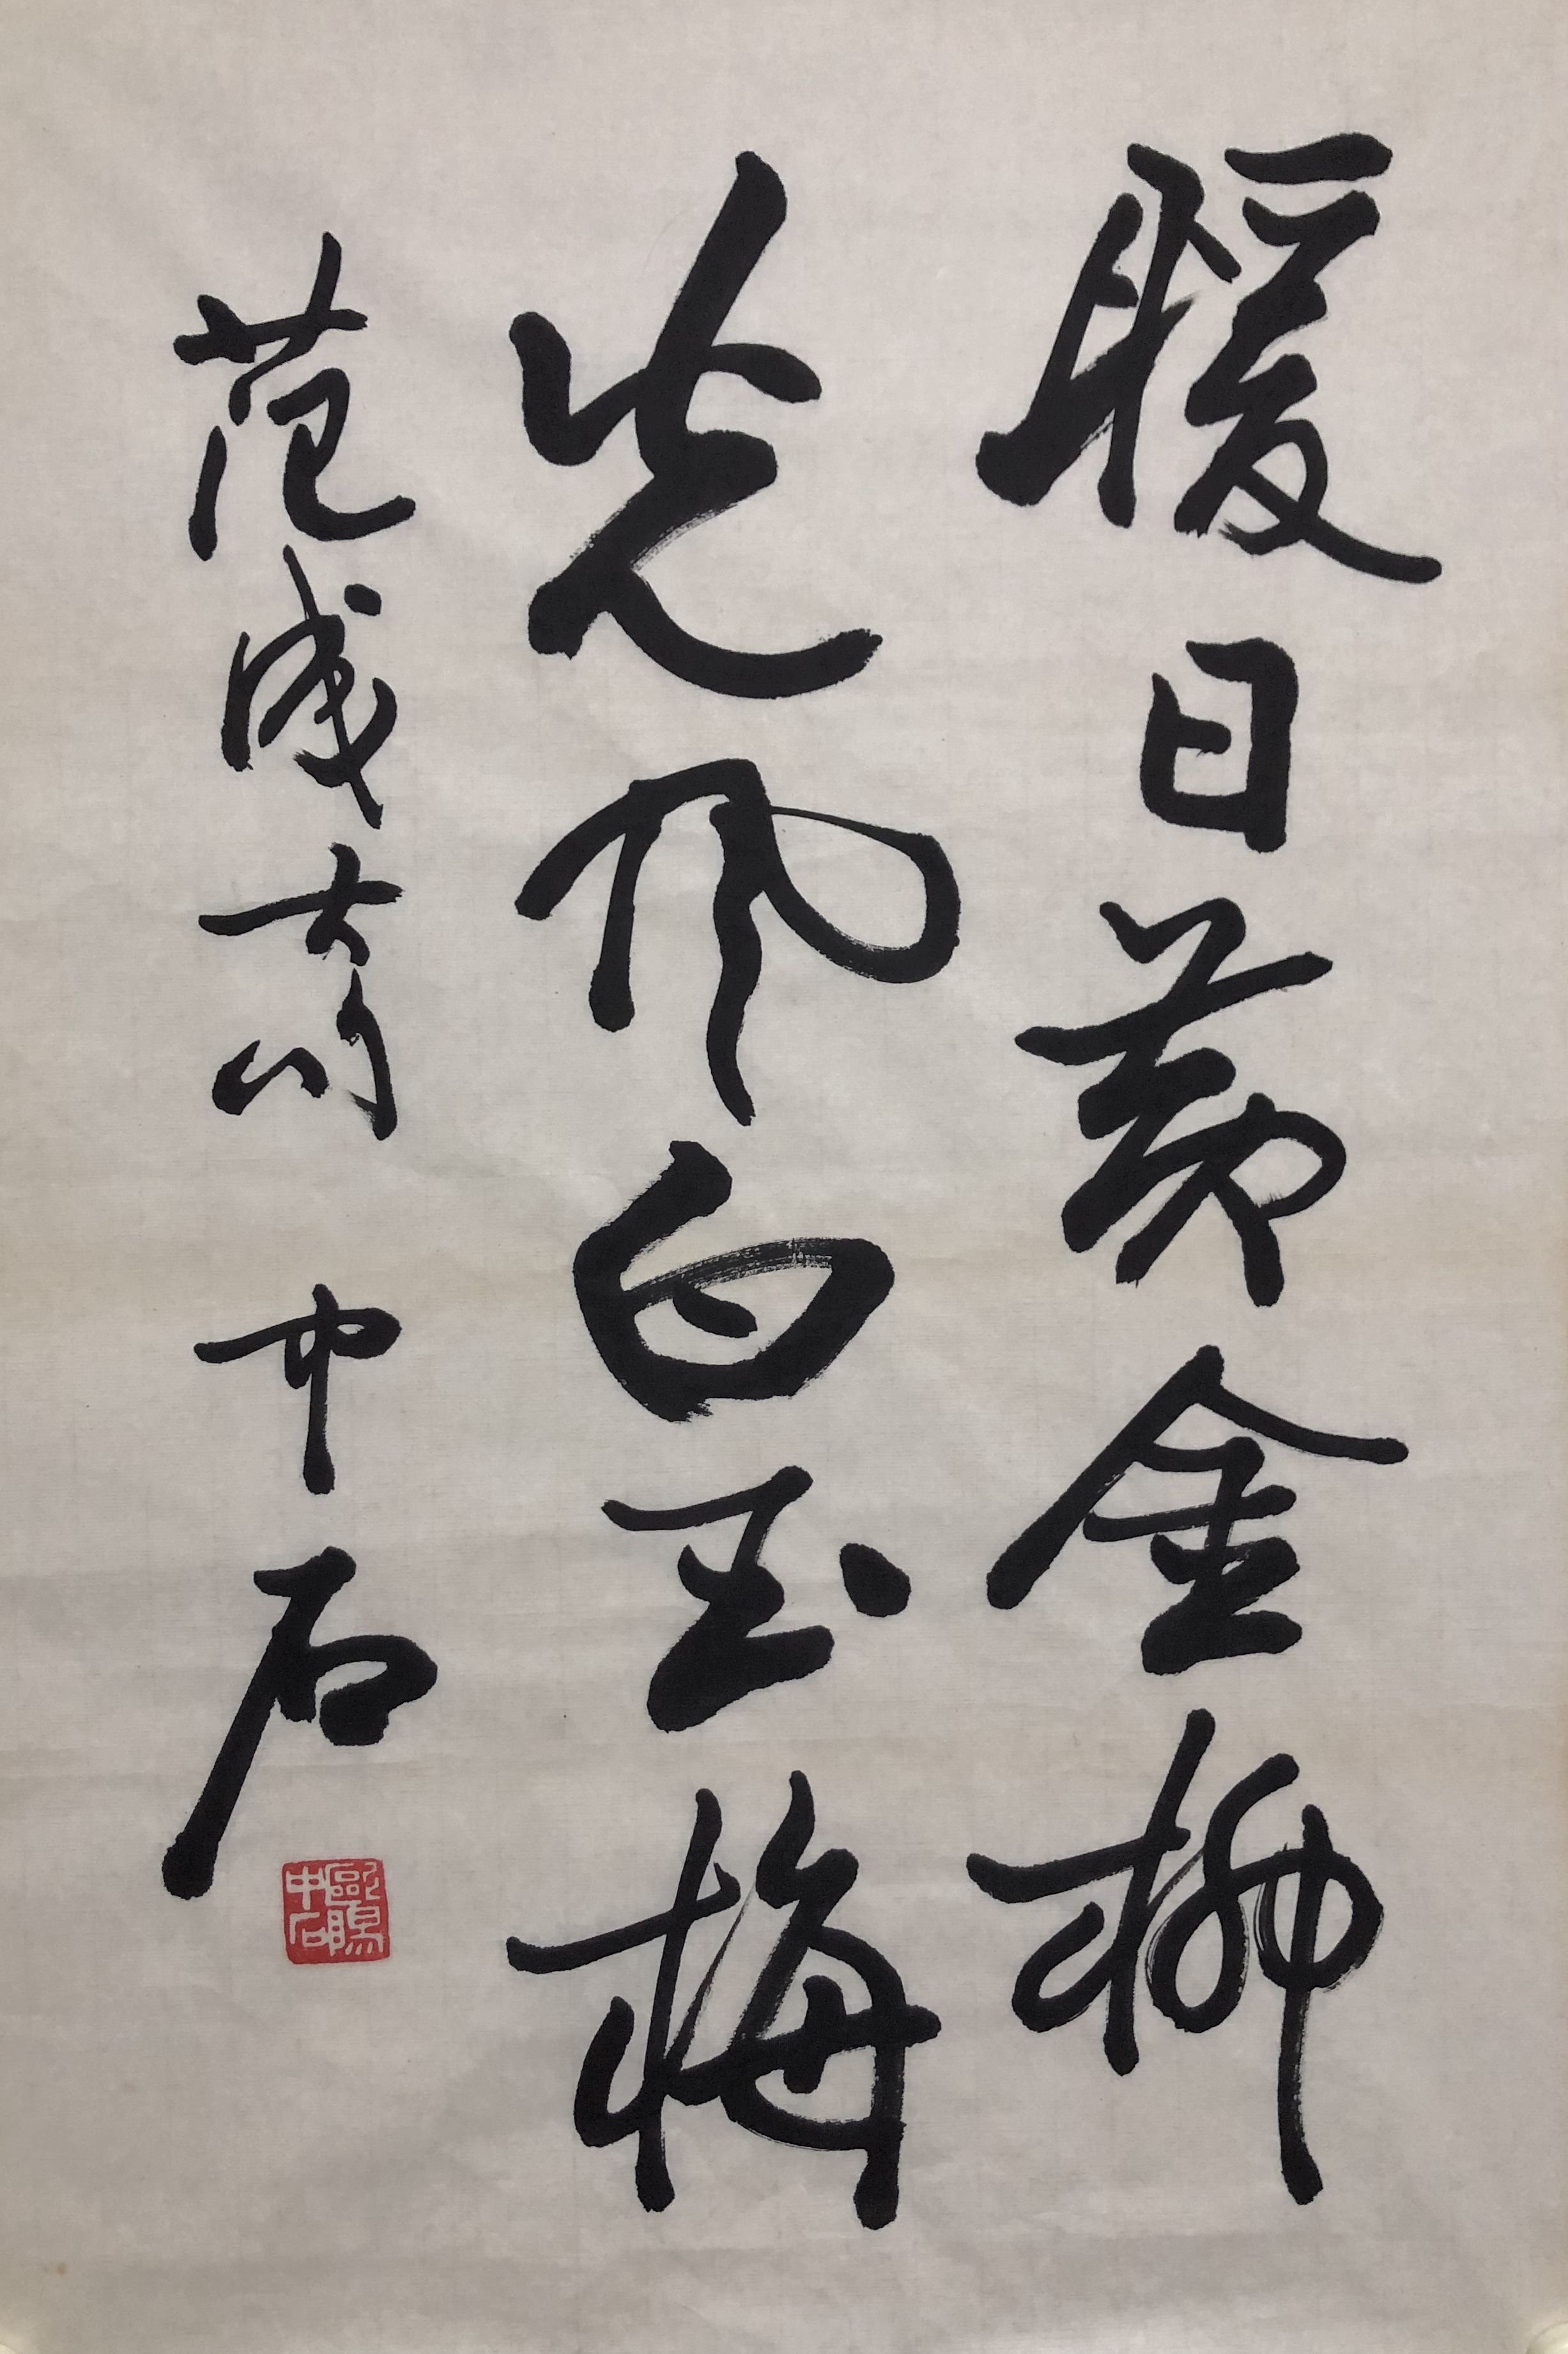 暖日黄金柳
光风白玉梅
范成大句 中石
歐陽中石